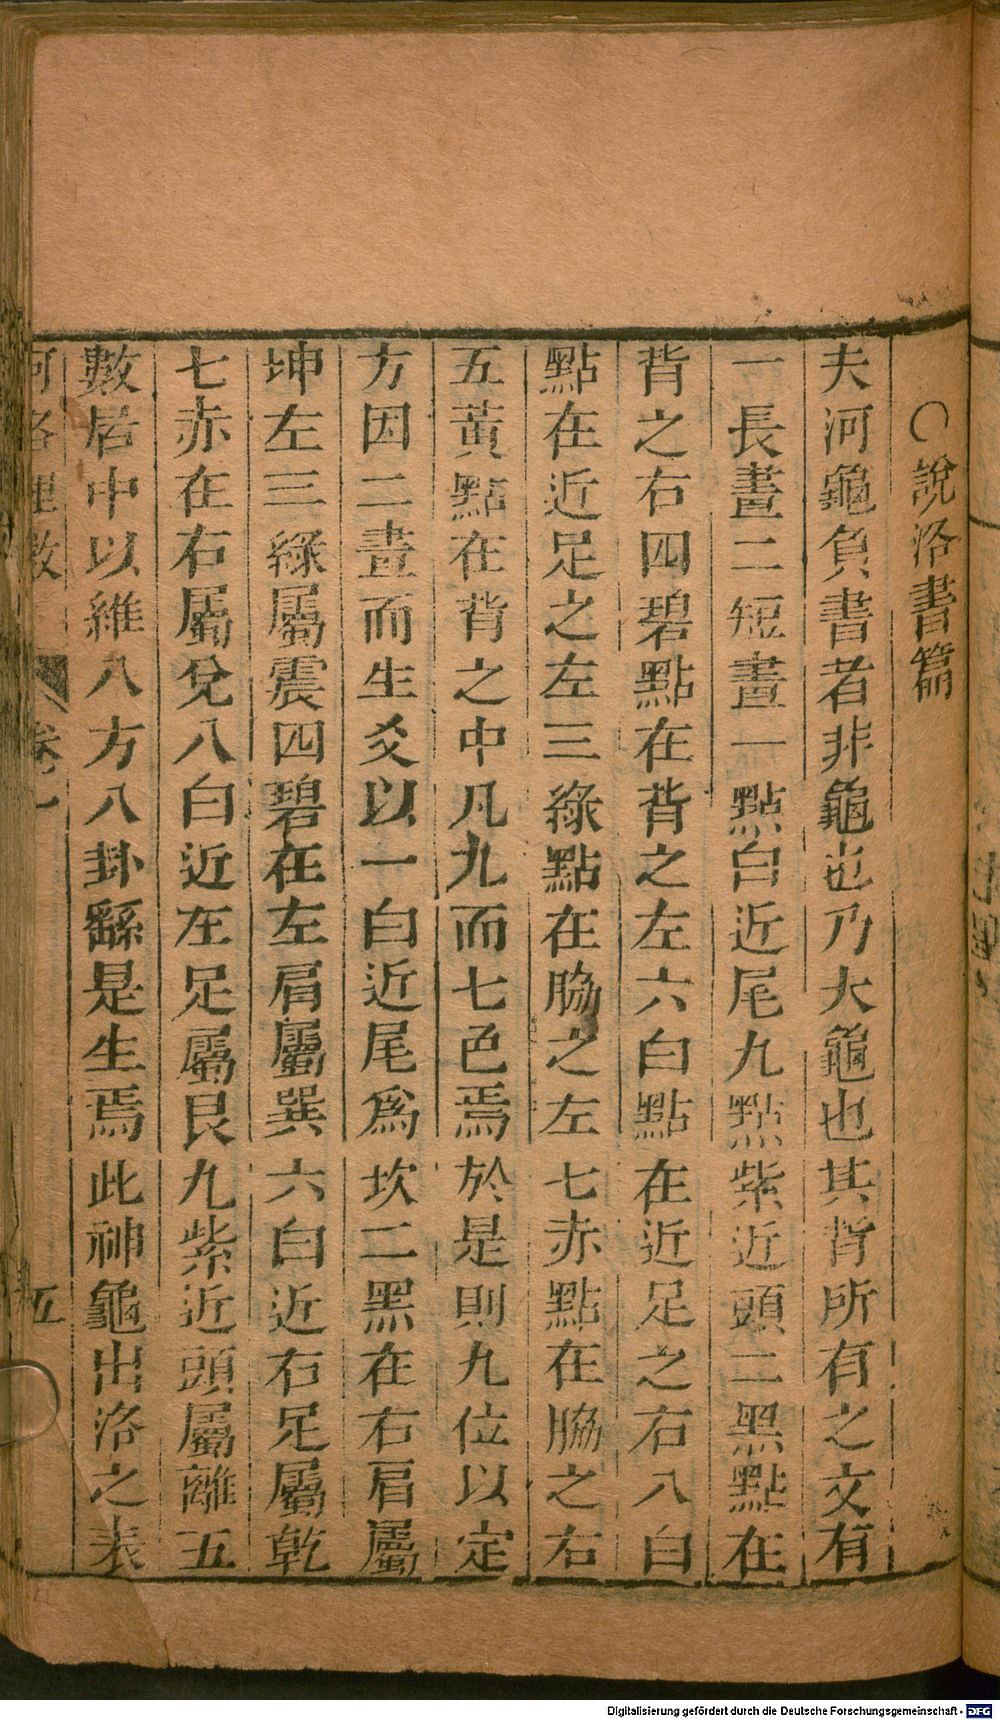 〇說洛書篇
夫河龜負書者非龜也乃大龜也其背所有之文有
一長畫二短畫一點白近尾九點紫近頭二黑點在
背之右四碧點在背之左六白點在近足之右八白
點在近足之左三綠點在脇之左七赤點在脇之右
五黃點在背之中凡九而七色焉於是則九位以定
方因二畫而生爻以一白近尾爲坎二黑在右肩屬
坤左三綠屬震四碧在左肩屬巽六白近右足屬乾
七赤在右屬兌八白近左足屬艮九紫近頭屬離五
數居中以維八方八卦繇是生焉此神龜出洛之表
河洛理數 卷一 五
Digitalisierung gefördert durch die Deutsche Forschungsgemeinschaft - DFG